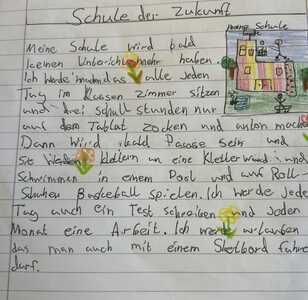 Schule der Zukunft
meine Schule
Meine Schule wird bald
keinen Unterricht mehr haben.
Ich werde das alle jeden
Tag im Klasen zimmer sitzen
und drei schull stunden nur
auf dem Tablat zocken und anton mach
Dann wird bald Pause sein und
sie klettern an eine Kletterwand und
Schwimmen in einem Pool und auf Roll-
Schuhen Basceball spielen. Ich werde jede
Tag auch ein Test schreiben und Jeden
Monat eine Arbeit. Ich werde erlauben
das man auch mit einem Sketbord fahre
darf.